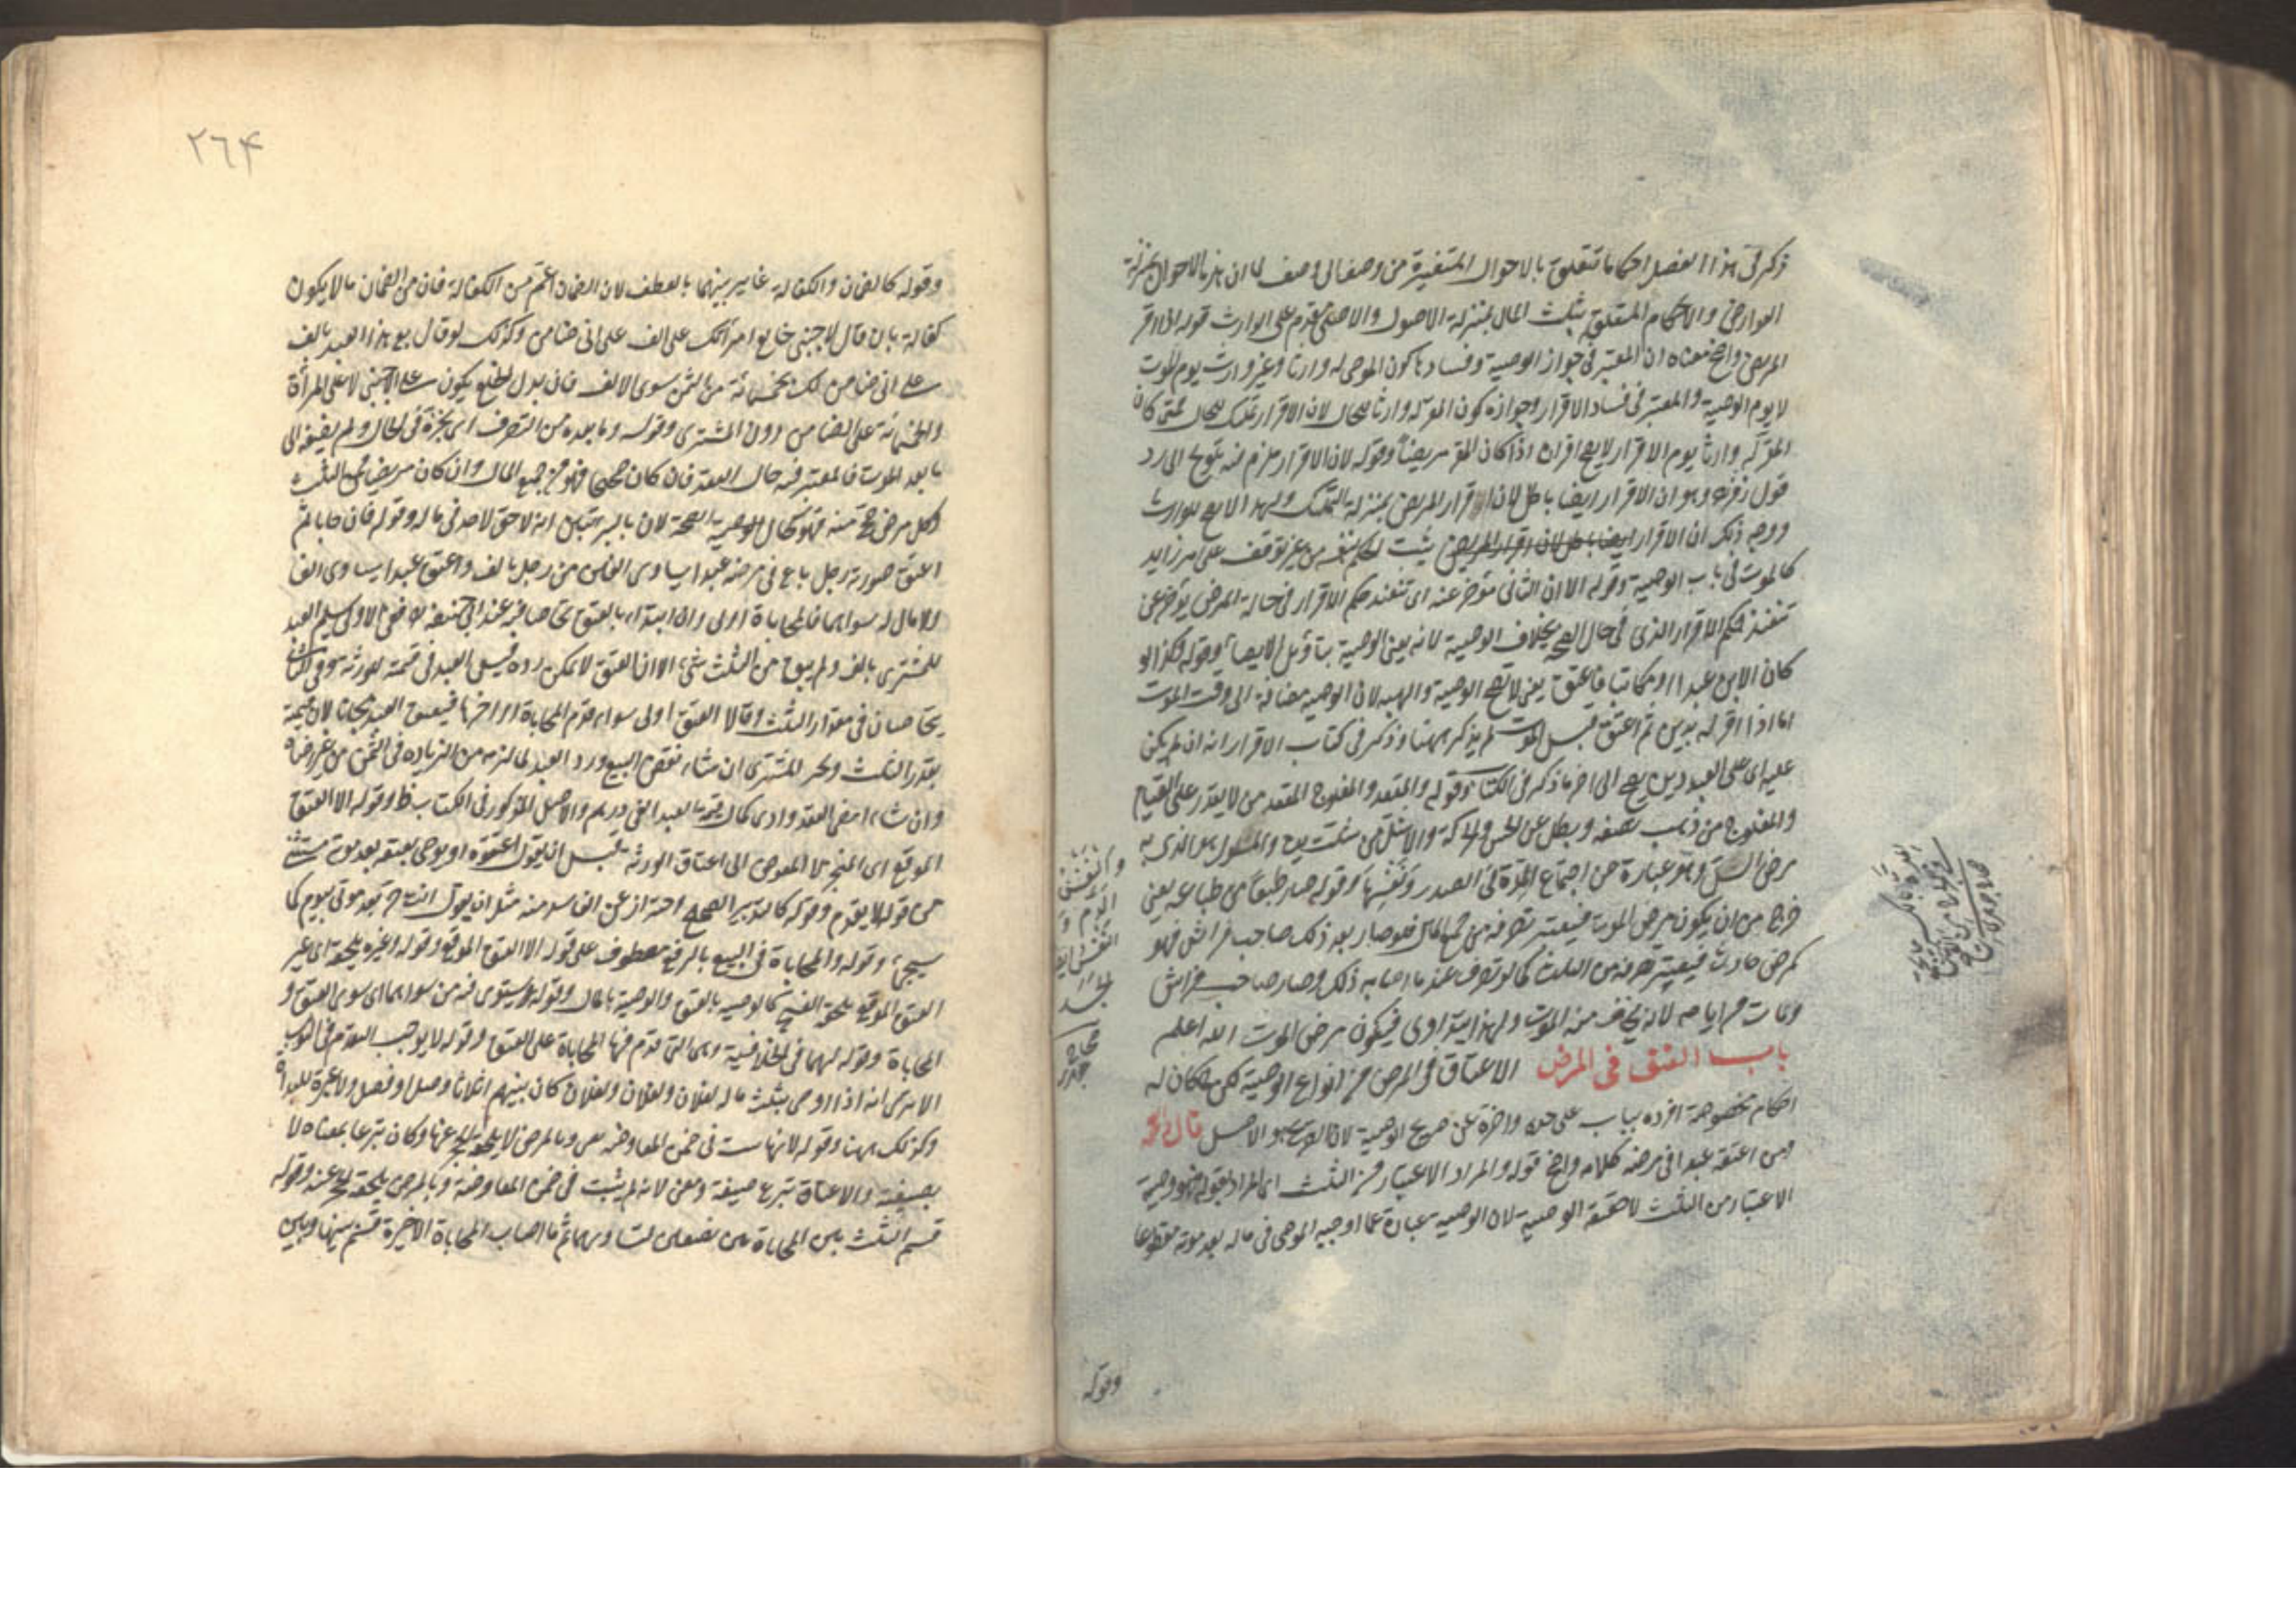 ذكر في هذا الفصل احكاما تتعلق بالاحوال المتغيرة من وصف الى وصف لما ان هذه الاحوال بمنزلة
العوارض والاحكام المتعلقة بثلث المال بمنزلة الاصول والاصل مقدم على الوارث قوله اذا اقر
المريض واضح معناه ان المعتبر في جواز الوصية وفسادها كون الموصى له وارثا وغير وارث يوم الموت
لا يوم الوصية والمعتبر في فساد الاقرار وجوازه كون المقر له وارثا للحال لان الاقرار تمليك للحال فمتى كان
المقر له وارثا يوم الاقرار لا يصح اقراره اذا كان المقر مريضا وقوله لان الاقرار ملزم فيه تلويح الى رد
قول زفر وهو ان الاقرار ايضا باطل لان اقرار المريض بمنزلة التمليك ولهذا لا يصح للوارث
ووجه ذلك ان الاقرار ايضا باطل لان اقرار المريض يثبت الحكم بنفسه من غير توقف على امر زايد
كالموت في باب الوصية وقوله الا ان الثاني مؤخر عنه اي تنفيذ حكم الاقرار في حالة المرض يؤخر عن
تنفيذ حكم الاقرار الذي في حال الصحة بخلاف الوصية لانه يعني الوصية بتأويل الايصاء وقوله فكذا لو
كان الابن عبدا او مكاتبا فاعتق يعني لا تصح الوصية والهبة لان الوصية مضافة الى وقت الموت
اما اذا اقر له بدين ثم اعتق قبل الموت لم يذكر ههنا وذكر في كتاب الاقرار انه ان لم يكن
عليه اي على العبد دين يصح الى اخر ما ذكر في الكتاب وقوله والمقعد والمفلوج المقعد من لا يقدر على القيام
والمفلوج من ذهب نصفه وبطل عن الحس والحركة والاشل من شلت يده والمسلول هو الذي به
مرض السل وهو عبارة عن اجتماع المدة في الصدر ونفثها وقوله صار طبعا من طباعه يعني
خرج من ان يكون مرض الموت فيعتبر تصرفه من جميع المال فلو صار بعد ذلك صاحب فراش فهو
كمرض حادث فيعتبر تصرفه من الثلث كما لو تصرف عند ما اصابه ذلك وصار صاحب فراش
ومات من ايامه لانه يخاف منه الموت ولهذا يتداوى فيكون مرض الموت الله اعلم
باب العتق في المرض الاعتاق في المرض من انواع الوصية لكن لما كان له
احكام مخصوصة افرده بباب على حدة واخره عن صريح الوصية لان الصريح هو الاصل قال
ومن اعتق عبدا في مرضه كلامه واضح قوله والمراد الاعتبار من الثلث اي المراد بقوله فهو وصية
الاعتبار من الثلث لا حقيقة الوصية لان الوصية عبارة عما اوجبه الموصي في ماله بعد موته مقطوعا
وقوله
٢٦۴
وقوله كالضمان والكفالة غاير بينهما بالعطف لان الضمان اعم من الكفالة فان من الضمان ما لا يكون
كفالة بان قال لاجنبي خالع امرأتك على الف على اني ضامن وكذلك لو قال بع هذا العبد بالف
على اني ضامن لك بخمسمائة من الثمن سوى الالف فان بدل الخلع يكون على الاجنبي لا على المرأة
والخمسمائة على الضامن دون المشتري وقوله وما بعده من التصرف اي نجزه في الحال ولم يضفه الى
ما بعد الموت فالمعتبر فيه حال العقد فان كان صحيحا فهو من جميع المال وان كان مريضا فمن الثلث
وكل مرض صح منه فهو كحال الصحة لان بالبرء تبين انه لا حق لاحد في ماله وقوله فان حابا ثم
اعتق صورته رجل باع في مرضه عبدا يساوي الفين من رجل بالف واعتق عبدا يساوي الفا
ولا مال له سواهما فالمحاباة اولى وان ابتداء بالعتق تحاصا فيه عند ابي حنيفة ففي الاول يسلم العبد
للمشتري بالف ولم يبق من الثلث شيء الا ان العتق لا يمكن رده فيسعى العبد في قيمته للورثة وفي الثاني
يتحاصان في مقدار الثلث وقالا العتق اولى سواء قدم المحاباة او اخرها فيعتق العبد مجانا لان قيمته
بقدر الثلث ويخير المشتري ان شاء نقض البيع ورد العبد لما لزمه من الزيادة في الثمن من غير رضاه
وان شاء امضى العقد وادى كمال قيمة العبد الفي درهم والاصل المذكور في الكتاب ظ وقوله الا العتق
الموقع اي المنجز لا المفوض الى اعتاق الورثة قبل ان يقول اعتقوه او يوصي بعتقه بعد موته مستثنى
من قوله لا يقدم وقوله كالتدبير الصحيح احتراز عن الفاسد منه مثل ان يقول انت حر بعد موتي بيوم كما
سيجيء وقوله والمحاباة في البيع بالرفع معطوف على قوله الا العتق الموقع وقوله وغيره يلحقه اي غير
العتق الموقع يلحقه الفسخ كالوصية بالعتق والوصية بالمال وقوله ويستوي فيه من سواهما اي سوى العتق و
المحاباة وقوله لهما في الخلافية وهي التي قدم فيها المحاباة على العتق وقوله لا يوجب التقدم في الثبوت
الا ترى انه اذا اوصى بثلث ماله لفلان ولفلان ولفلان كان بينهم اثلاثا وصل او فصل ولا عبرة للبداة
وكذلك ههنا وقوله لانها تثبت في ضمن المعاوضة وكان تبرعا بمعناه لا
بصيغته والاعتاق تبرع صيغة ومعنى وقوله
قسم الثلث بين المحاباتين نصفين لتساويهما ثم ما اصاب المحاباة الاخيرة قسم بينها وبين